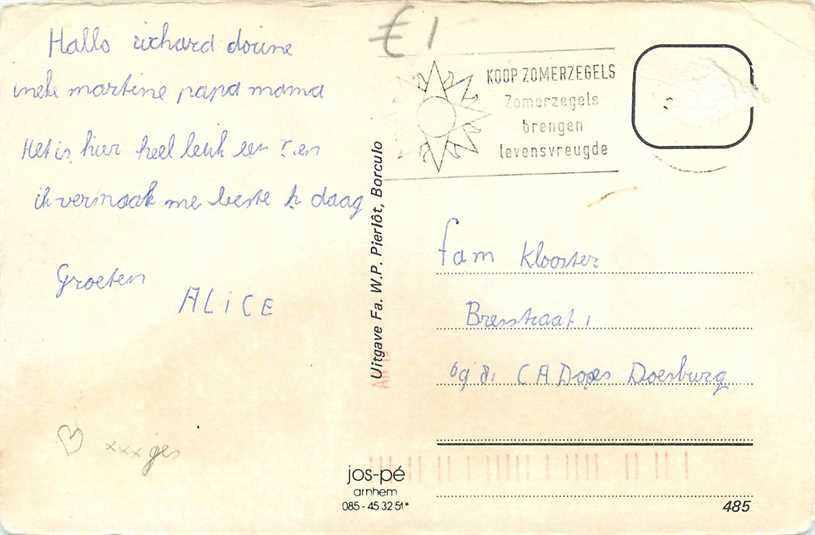 Hallo richard dorine
ineke martine papa mama
Het is hier heel leuk en
ik vermaak me beste daag
Groeten
ALICE
xxxjes
€ 1
KOOP ZOMERZEGELS
Zomerzegels
brengen
levensvreugde
Uitgave Fa. W.P. Pierlôt, Borculo
fam Klooster
Bresstraat 1
6981 CA Doesburg
jos-pé
arnhem
085 - 45 32 51*
485